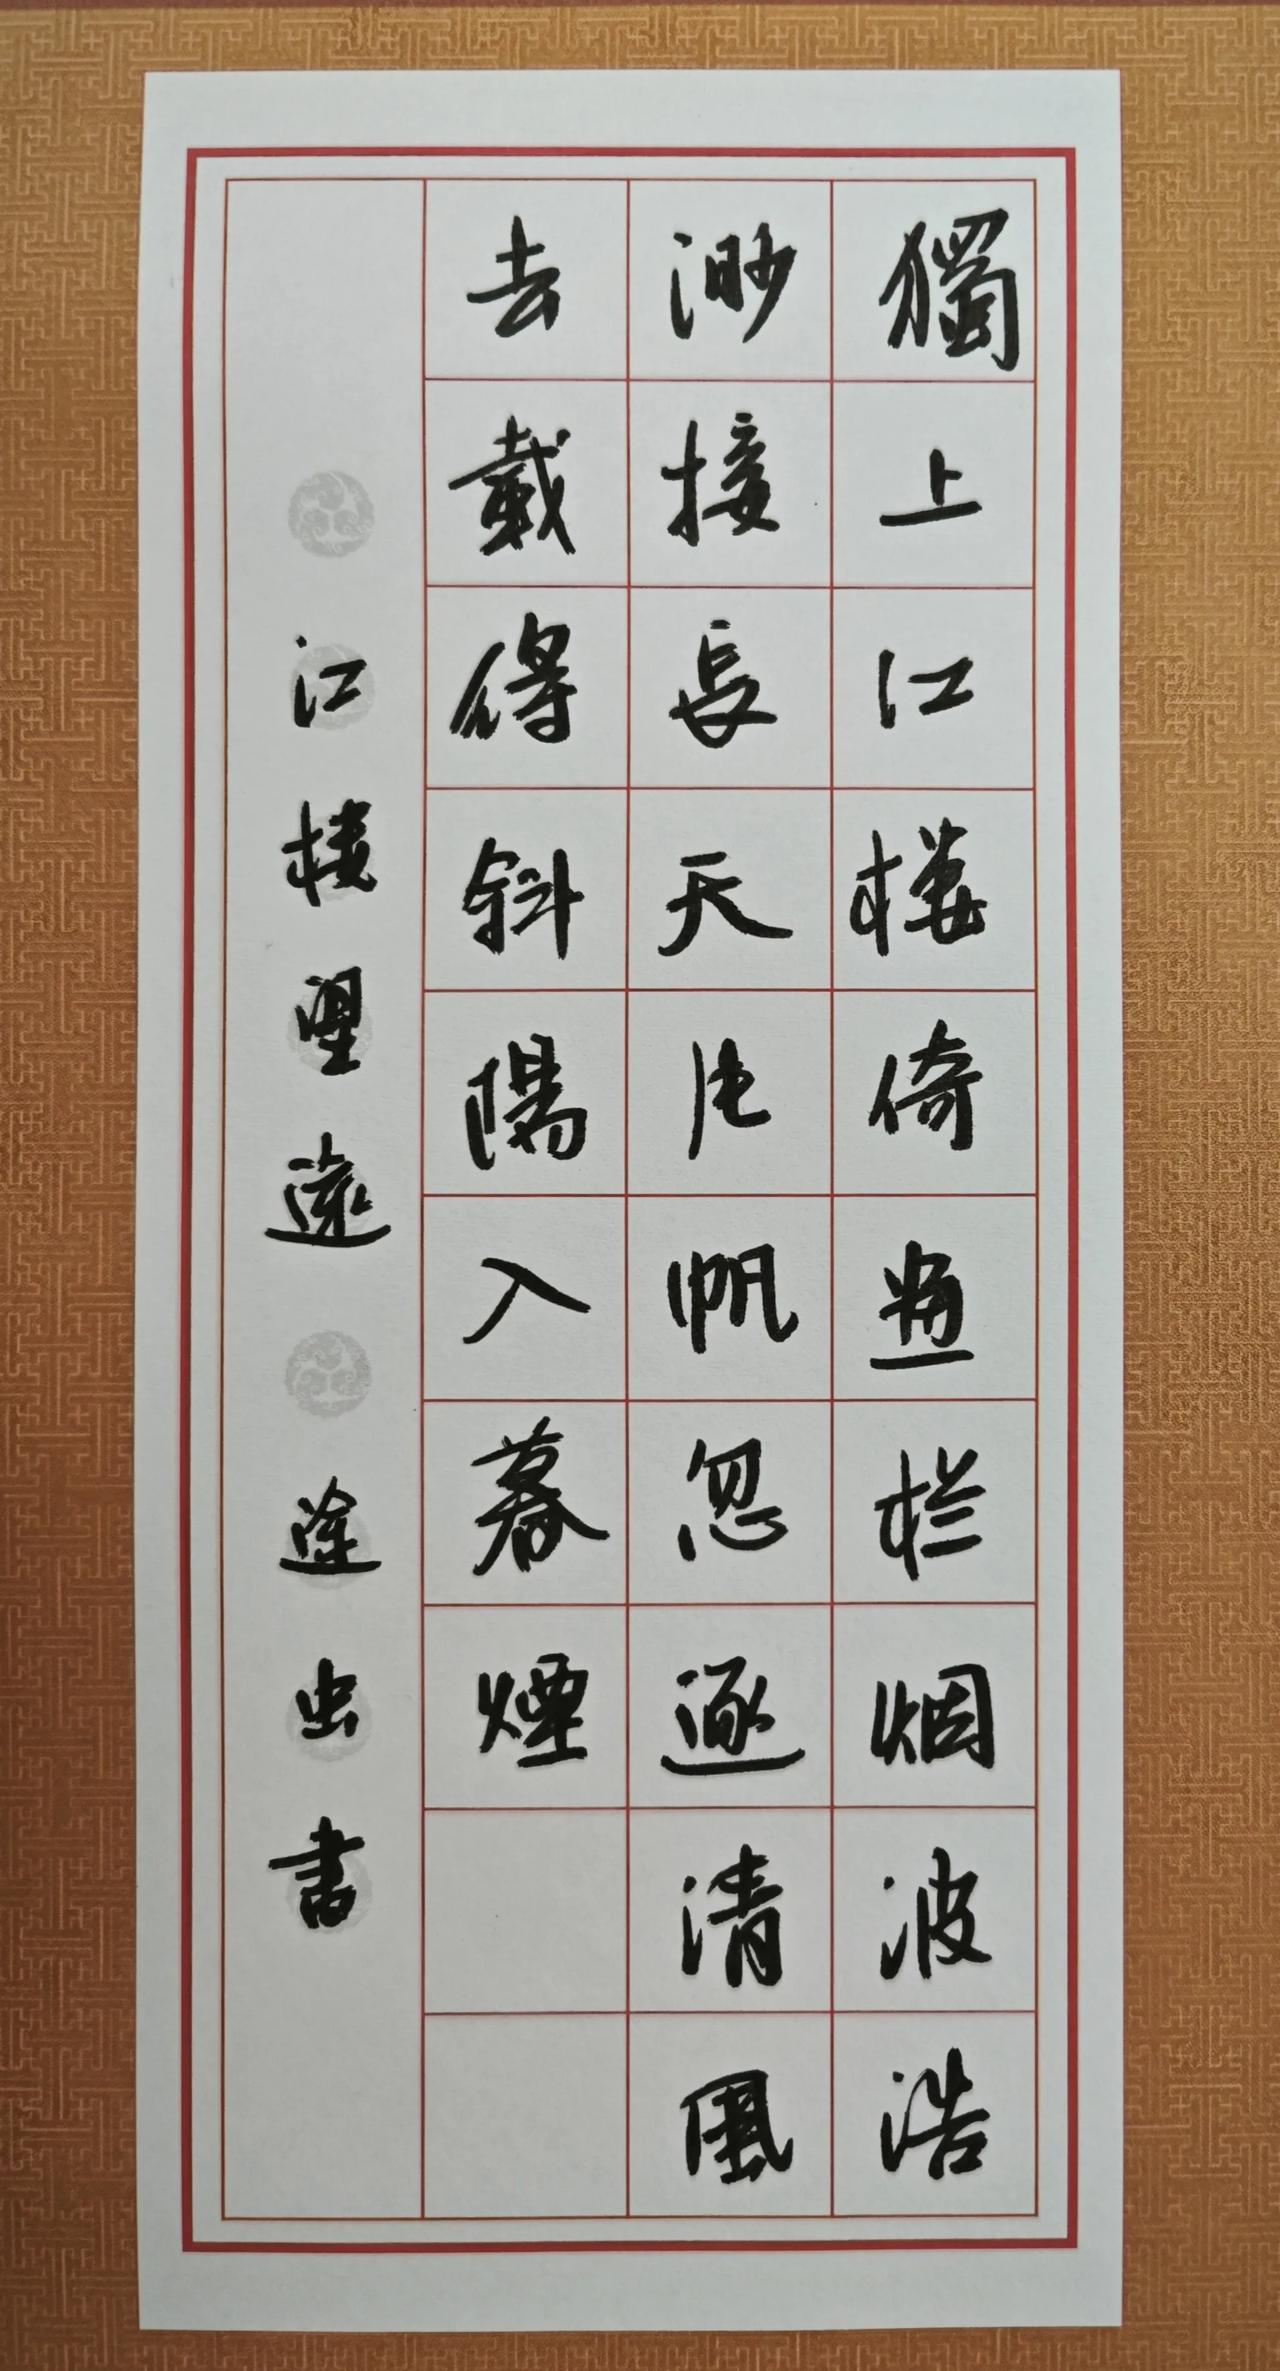 獨上江楼倚畫栏烟波浩
渺接長天片帆忽逐清風
去載得斜陽入暮煙
江楼望遠 途虫書